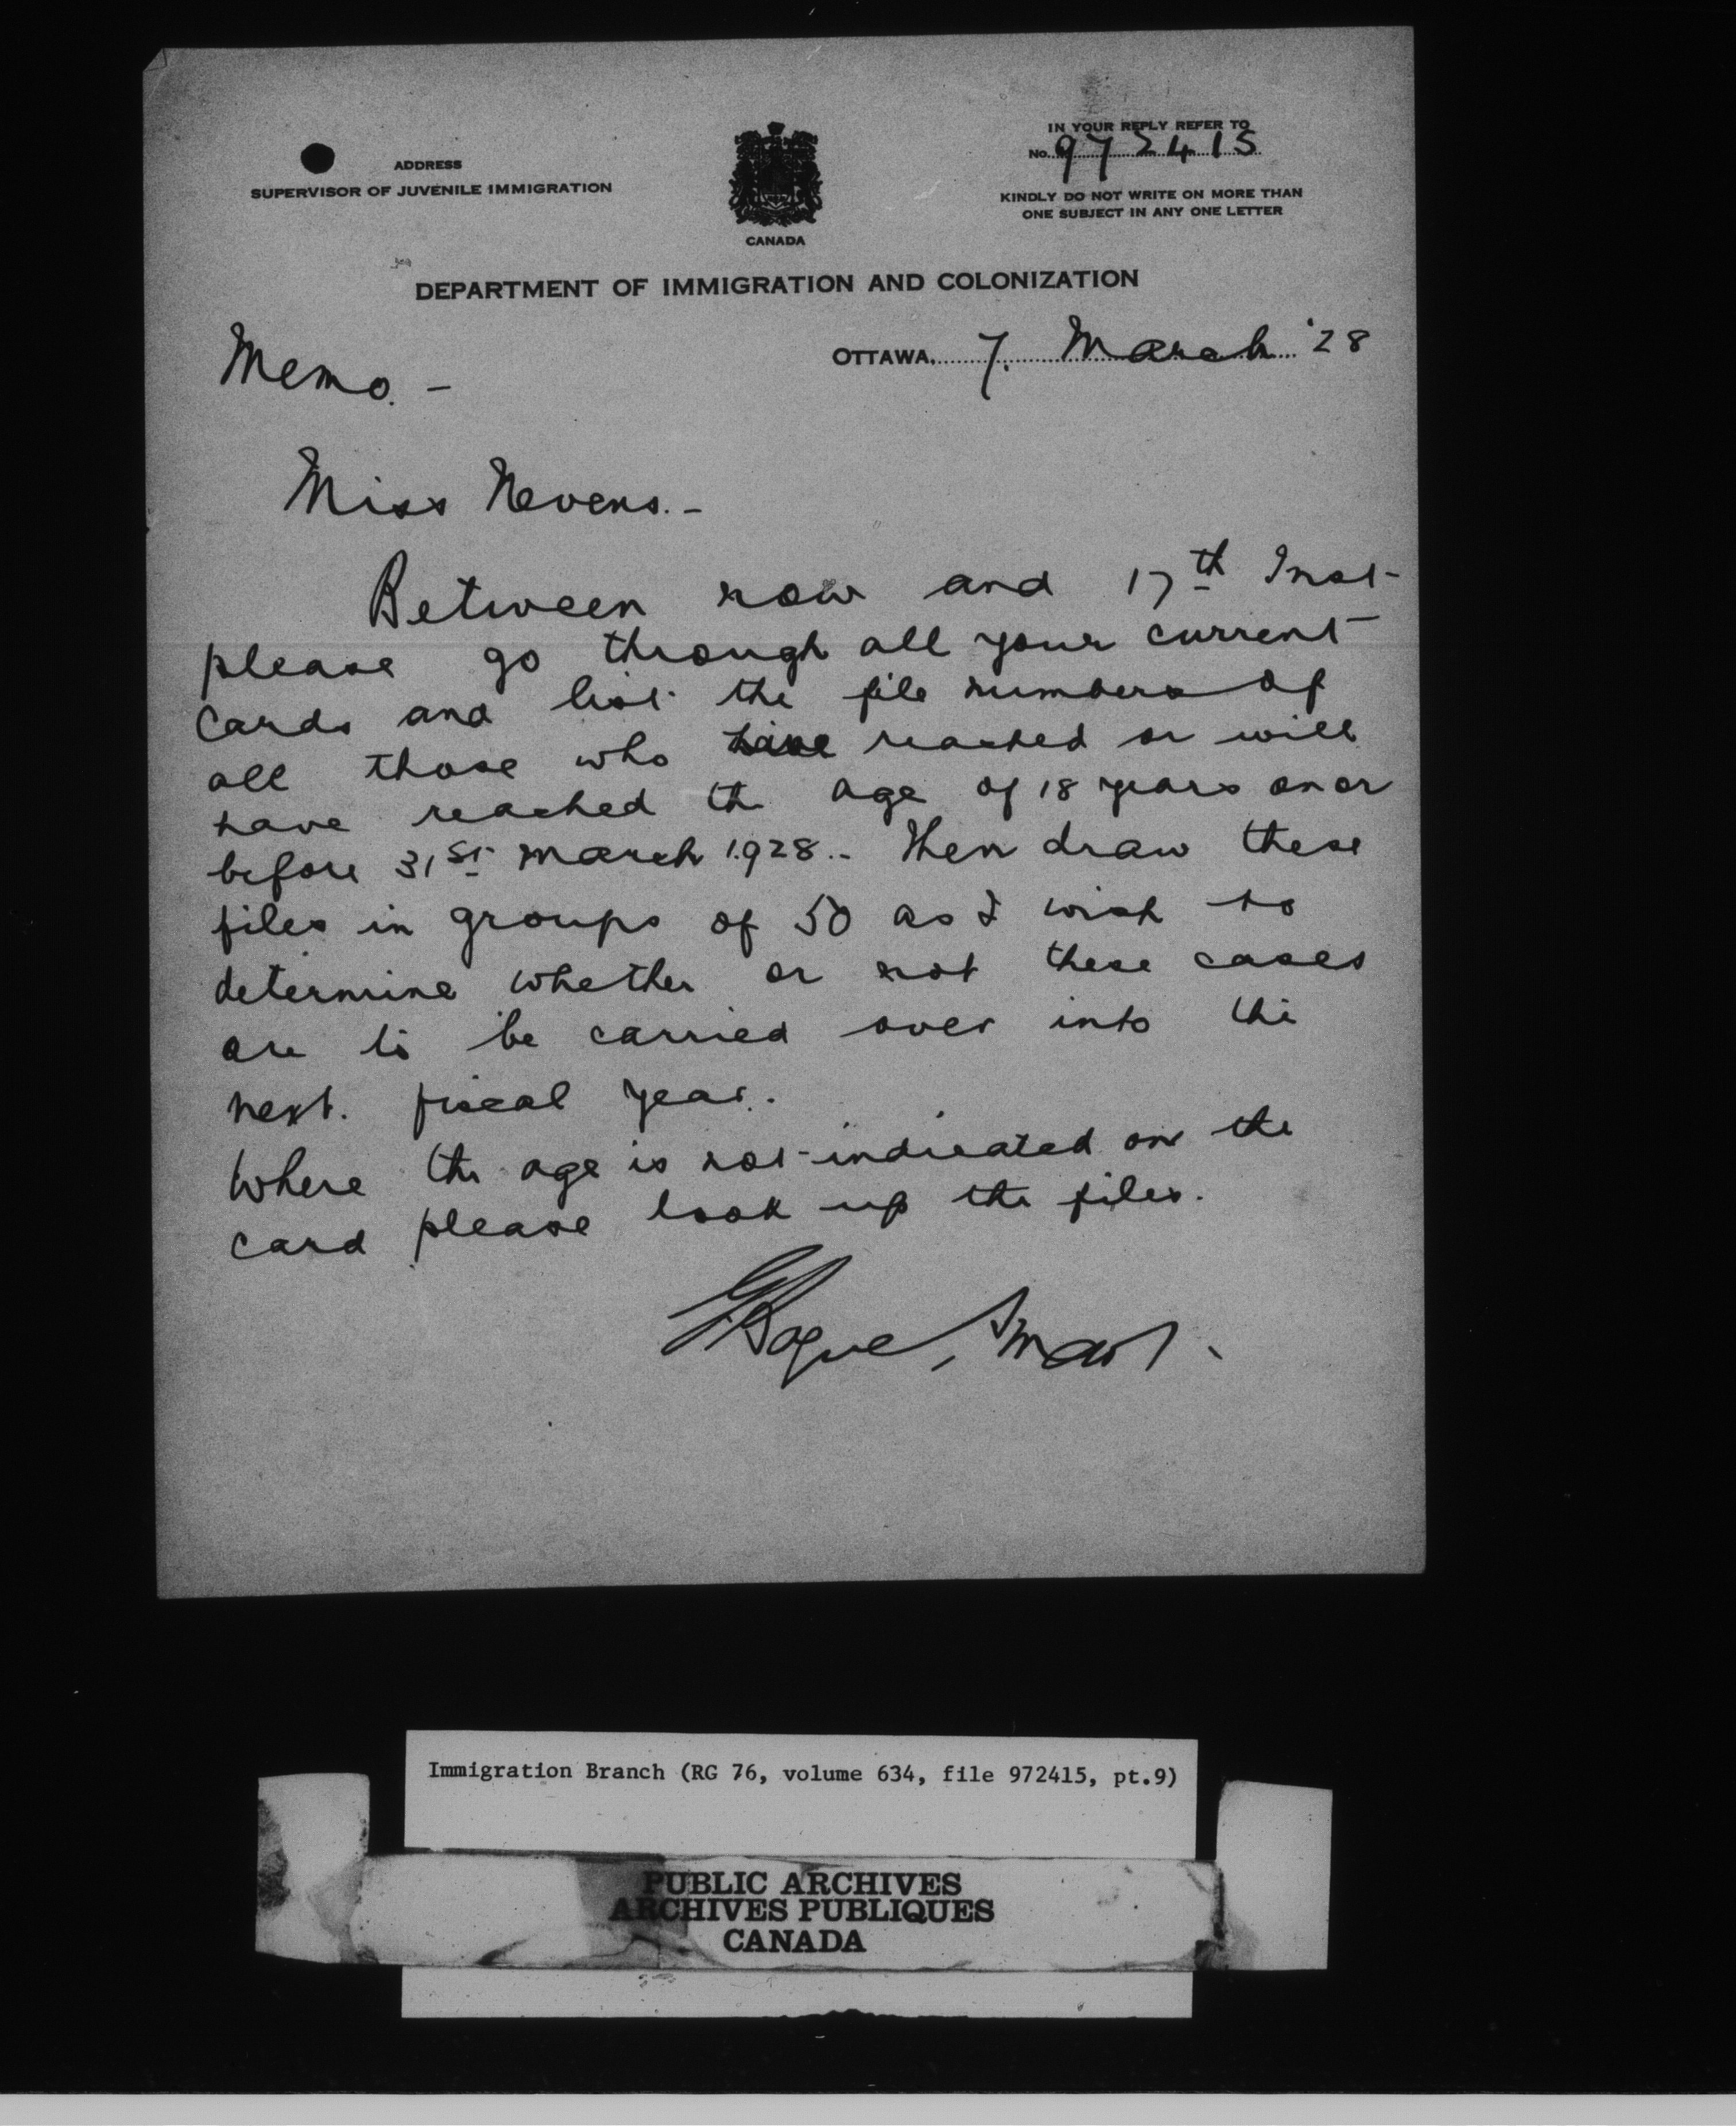 ADDRESS
SUPERVISOR OF JUVENILE IMMIGRATION
CANADA
IN YOUR REPLY REFER TO
No. 972415
KINDLY DO NOT WRITE ON MORE THAN
ONE SUBJECT IN ANY ONE LETTER
DEPARTMENT OF IMMIGRATION AND COLONIZATION
OTTAWA 7. March '28
Memo. -
Miss Nevens. -
Between now and 17th Inst
please go through all your current
cards and list the file numbers of
all those who have reached or will
have reached the age of 18 years on or
before 31st March 1928. - Then draw these
files in groups of 50 as I wish to
determine whether or not these cases
are to be carried over into the
next fiscal year.
Where the age is not indicated on the
card please look up the files.
G Bogue Smart.
Immigration Branch (RG 76, volume 634, file 972415, pt.9)
PUBLIC ARCHIVES
ARCHIVES PUBLIQUES
CANADA